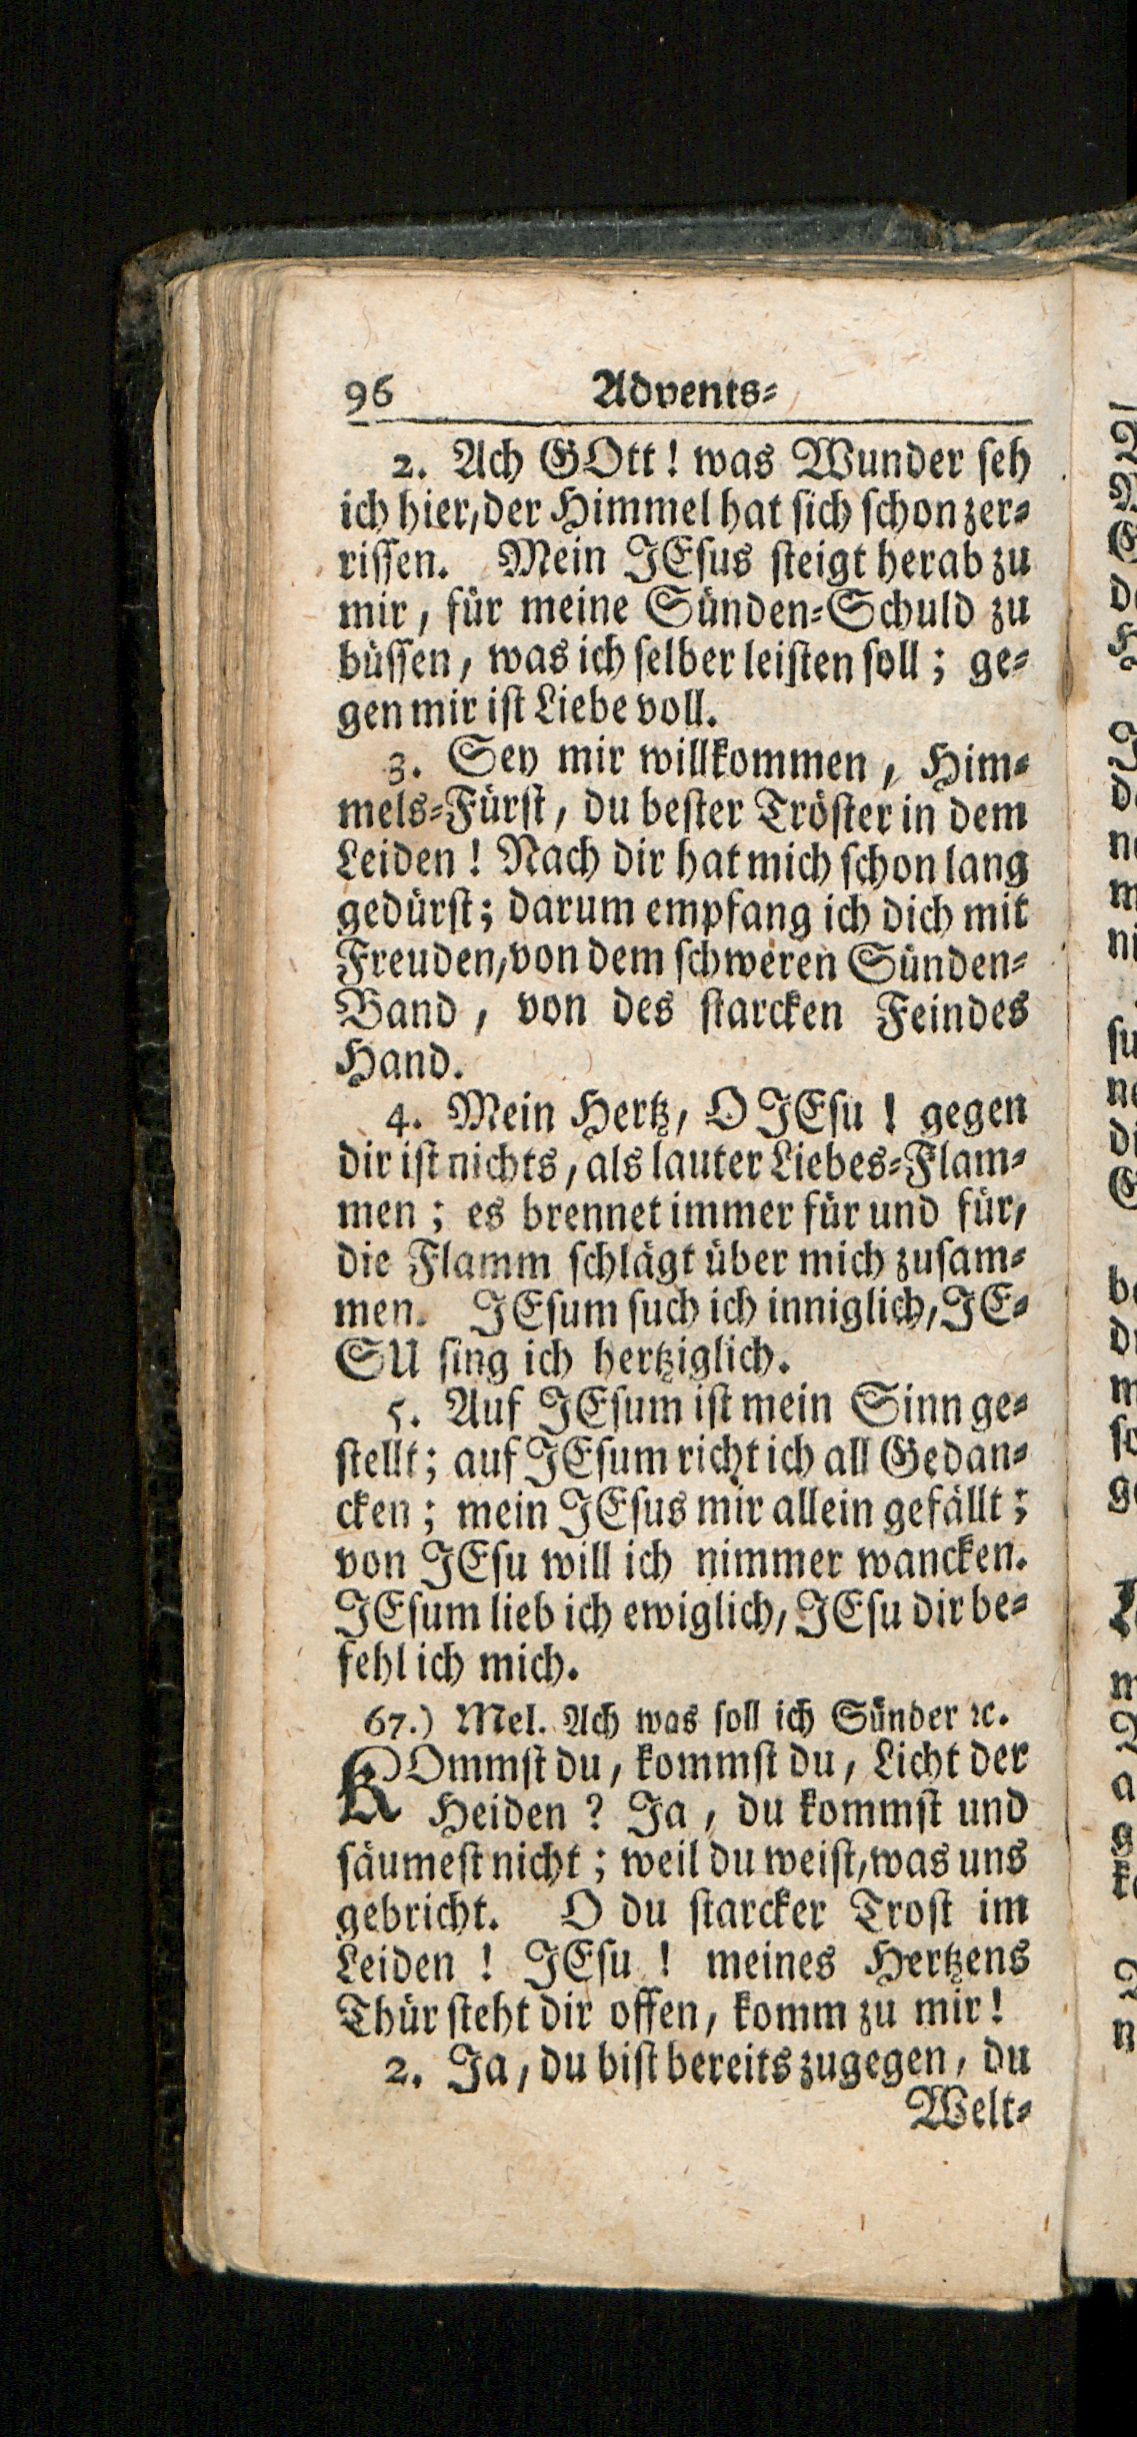 96 Advents⸗
2. Ach GOtt! was Wunder ſeh
ich hier, der Himmel hat ſich ſchon zer⸗
riſſen. Mein JEſus ſteigt herab zu
mir, für meine Sünden⸗Schuld zu
büſſen, was ich ſelber leiſten ſoll; ge⸗
gen mir iſt Liebe voll.
3. Sey mir willkommen, Him⸗
mels⸗Fürſt, du beſter Tröſter in dem
Leiden! Nach dir hat mich ſchon lang
gedürſt; darum empfang ich dich mit
Freuden, von dem ſchweren Sünden⸗
Band, von des ſtarcken Feindes
Hand.
4. Mein Hertz, O JEſu! gegen
dir iſt nichts, als lauter Liebes⸗Flam⸗
men; es brennet immer für und für,
die Flamm ſchlägt über mich zuſam⸗
men. JEſum ſuch ich inniglich, JE⸗
SU ſing ich hertziglich.
5. Auf JEſum iſt mein Sinn ge⸗
ſtellt; auf JEſum richt ich all Gedan⸗
cken; mein JEſus mir allein gefällt;
von JEſu will ich nimmer wancken.
JEſum lieb ich ewiglich, JEſu dir be⸗
fehl ich mich.
67.) Mel. Ach was ſoll ich Sünder ꝛc.
KOmmſt du, kommſt du, Licht der
Heiden? Ja, du kommſt und
ſäumeſt nicht; weil du weiſt, was uns
gebricht. O du ſtarcker Troſt im
Leiden! JEſu! meines Hertzens
Thür ſteht dir offen, komm zu mir!
2. Ja, du biſt bereits zugegen, du
Welt⸗